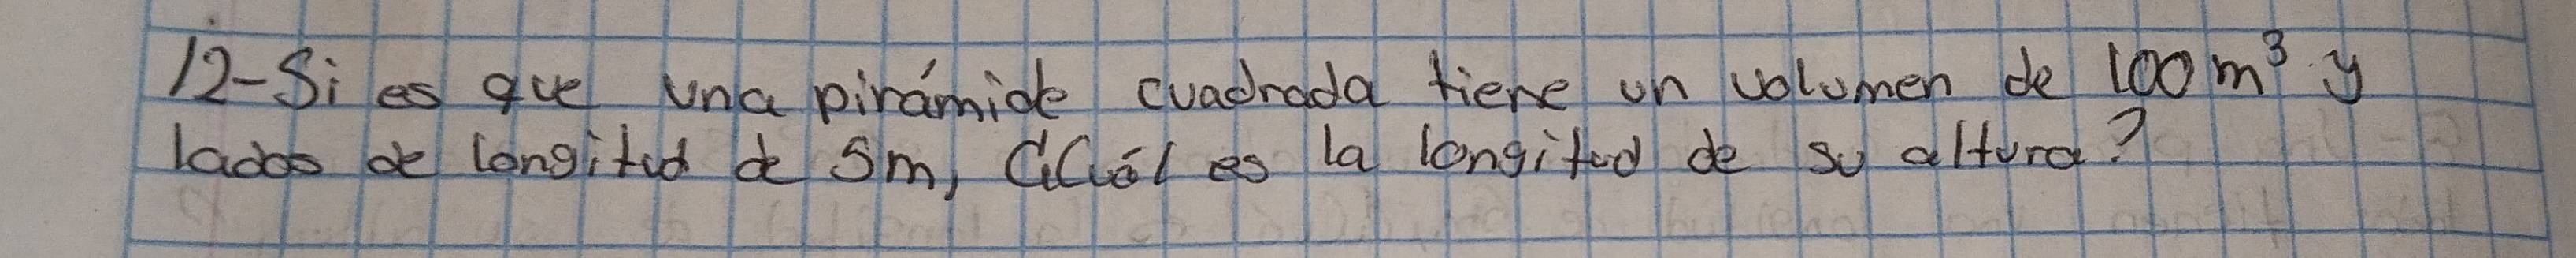 12-Si es que una pirámide cuadrada tiene un volumen de 100 m³ y
lados de longitud de 5m, ¿Cuál es la longitud de su altura?